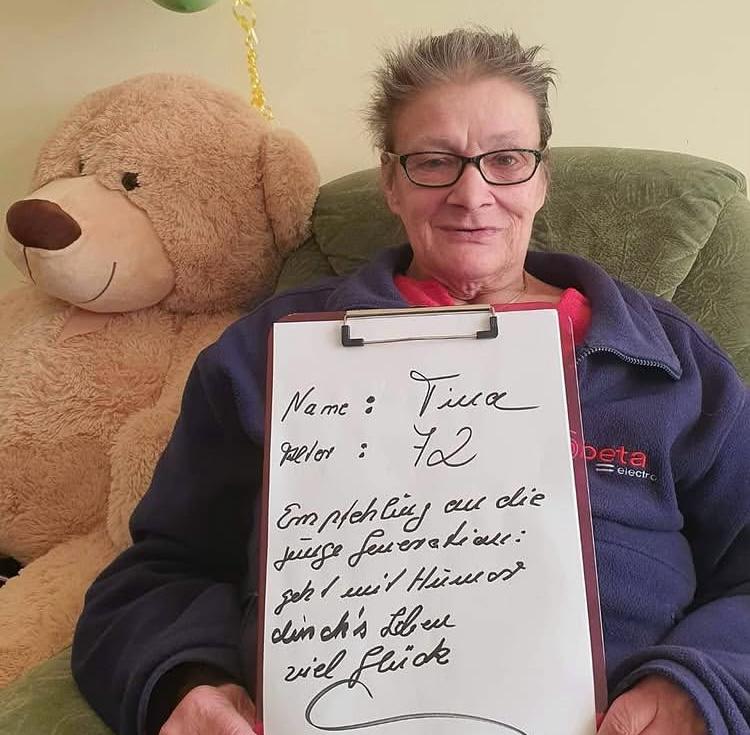 Name : Tina
Alter : 72
Empfehlung an die
junge Generation:
geht mit Humor
durch's Leben
viel Glück
peta
electro